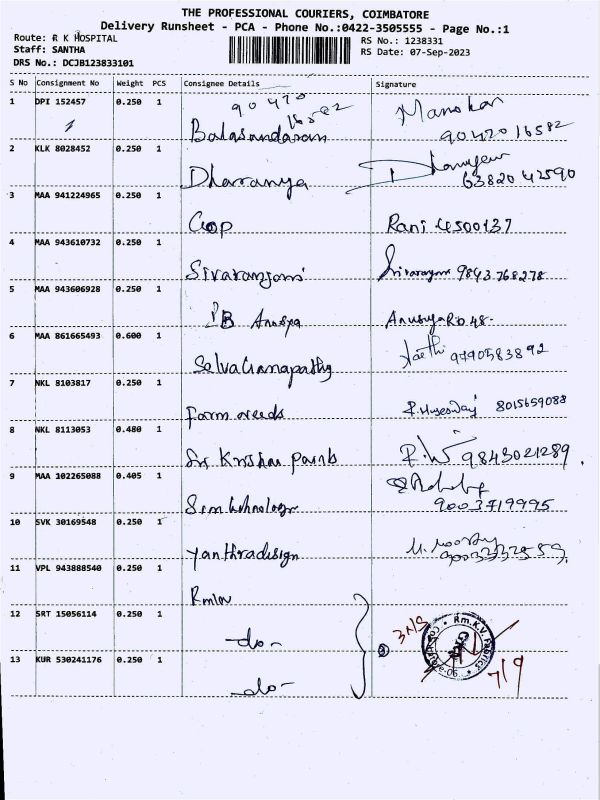 THE PROFESSIONAL COURIERS, COIMBATORE
Delivery Runsheet - PCA - Phone No.:0422-3505555 - Page No.:1
Route: R K HOSPITAL
RS No.: 1238331
Staff: SANTHA
RS Date: 07-Sep-2023
DRS No.: DCJB123833101
S No Consignment No Weight PCS Consignee Details Signature
1 DPI 152457 0.250 1 90420 16582 Balasandaram Manohar 9042016582
2 KLK 8028452 0.250 1 Dharranya 6382042590
3 MAA 941224965 0.250 1 Coop Rani 4500137
4 MAA 943610732 0.250 1 Sivaranjani 9843768278
5 MAA 943606928 0.250 1 Anusya
6 MAA 861665493 0.600 1 Selva Ganapathy 9790583892
7 NKL 8103817 0.250 1 Farm needs 8015659088
8 NKL 8113053 0.480 1 Sri Krishna Paints 9843021289
9 MAA 102265088 0.405 1 9003719995
10 SVK 30169548 0.250 1 Yanthradesign
11 VPL 943888540 0.250 1
12 SRT 15056114 0.250 1 -do- 3NS Rm.K.V. Fabrics
13 KUR 530241176 0.250 1 -do- 7/9